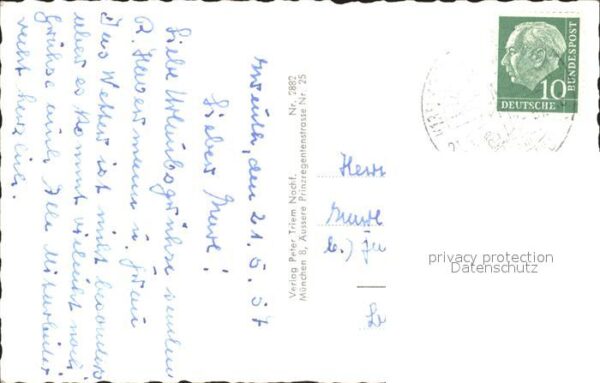 den 21.5.57
Lieber
Liebe Urlaubsgrüsse senden
R. Habermann u. Frau
Das Wetter ist nicht besonders
aber es kommt vielleicht noch.
Grüsse auch alle Mitarbeiter
recht herzlich.
Verlag Peter Triem Nachf. Nr. 2882
München 8, Äussere Prinzregentenstrasse Nr. 25
10
DEUTSCHE
BUNDESPOST
Herrn
privacy protection
Datenschutz